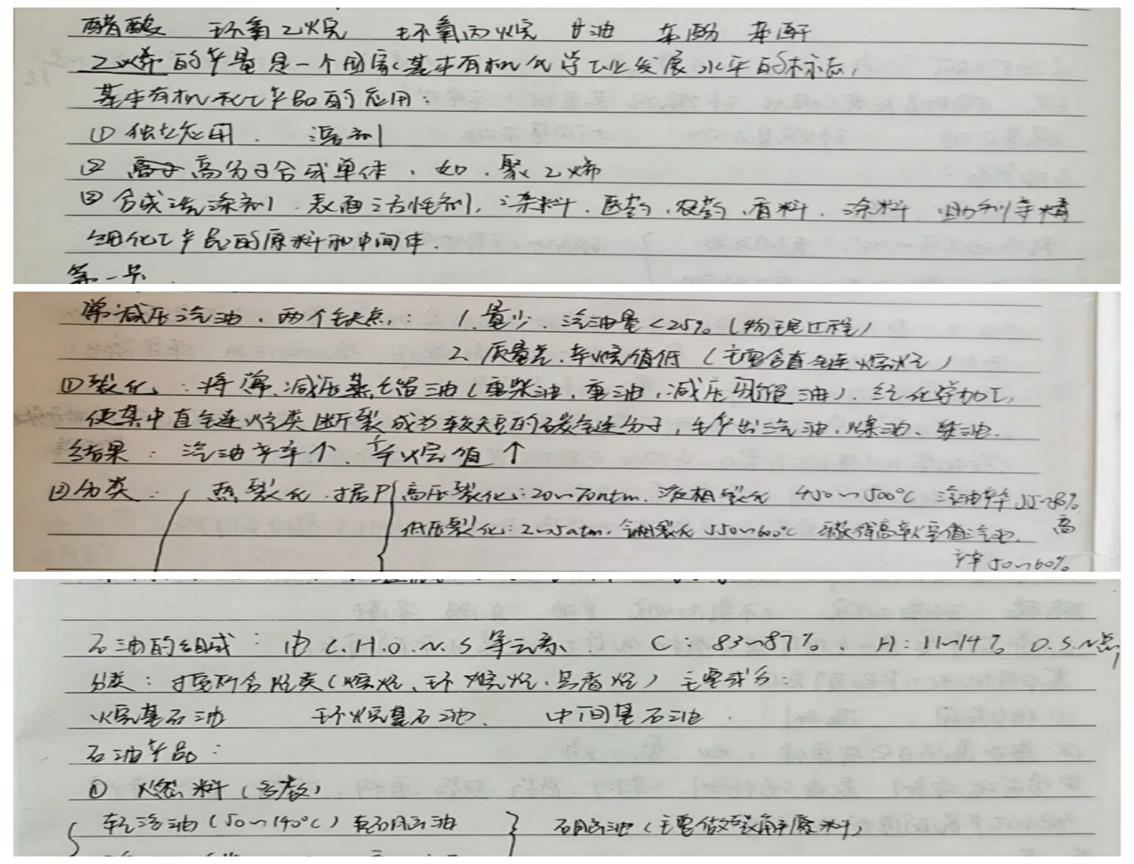 醋酸 环氧乙烷 环氧丙烷 甘油 苯酚 苯酐
乙烯的产量是一个国家基本有机化学工业发展水平的标志,
基本有机化工产品的应用:
① 独立应用. 溶剂
② 高分子合成单体, 如. 聚乙烯
③ 合成洗涤剂. 表面活性剂, 染料. 医药, 农药. 香料. 涂料. 助剂等精
细化工产品的原料和中间体.
第一节.
常减压汽油. 两个缺点: 1. 量少. 汽油量<25% (物理过程)
2. 质量差. 辛烷值低 (主要含直链烷烃)
① 裂化: 将常、减压蒸馏油(重柴油, 重油, 减压馏油). 经化学加工,
使其中直链烃类断裂成为较短的碳链分子, 生产出汽油. 煤油、柴油.
结果: 汽油产率↑、辛烷值↑
② 分类: 热裂化. 据P 高压裂化: 20~70atm. 液相裂化 450~500℃ 汽油产率
低压裂化: 2~5atm, 气相裂化 550~600℃ 获得高辛烷值汽油,
产率50~60% 高
石油的组成: 由C.H.O.N.S.等元素 C: 83~87%. H: 11~14% O.S.N
分类: 据所含烃类(烷烃、环烷烃、芳香烃) 主要成分:
烷基石油 环烷基石油. 中间基石油.
石油产品:
① 燃料(多数)
轻汽油(50~140℃) 轻石脑油 石脑油(主要做裂解原料)